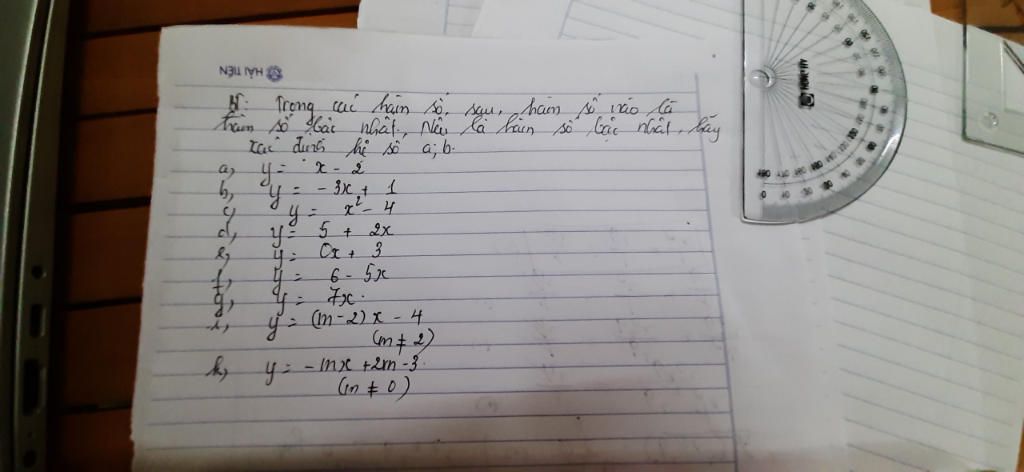 HẢI TIẾN
BT: Trong các hàm số sau, hàm số nào là
hàm số bậc nhất, Nếu là hàm số bậc nhất, hãy
xác định hệ số a, b.
a, y = x - 2
b, y = - 3x + 1
c, y = x² - 4
d, y = 5 + 2x
e, y = 0x + 3
f, y = 6 - 5x
g, y = 7x.
i, y = (m-2) x - 4
(m ≠ 2)
k, y = - mx + 2m - 3.
(m ≠ 0)